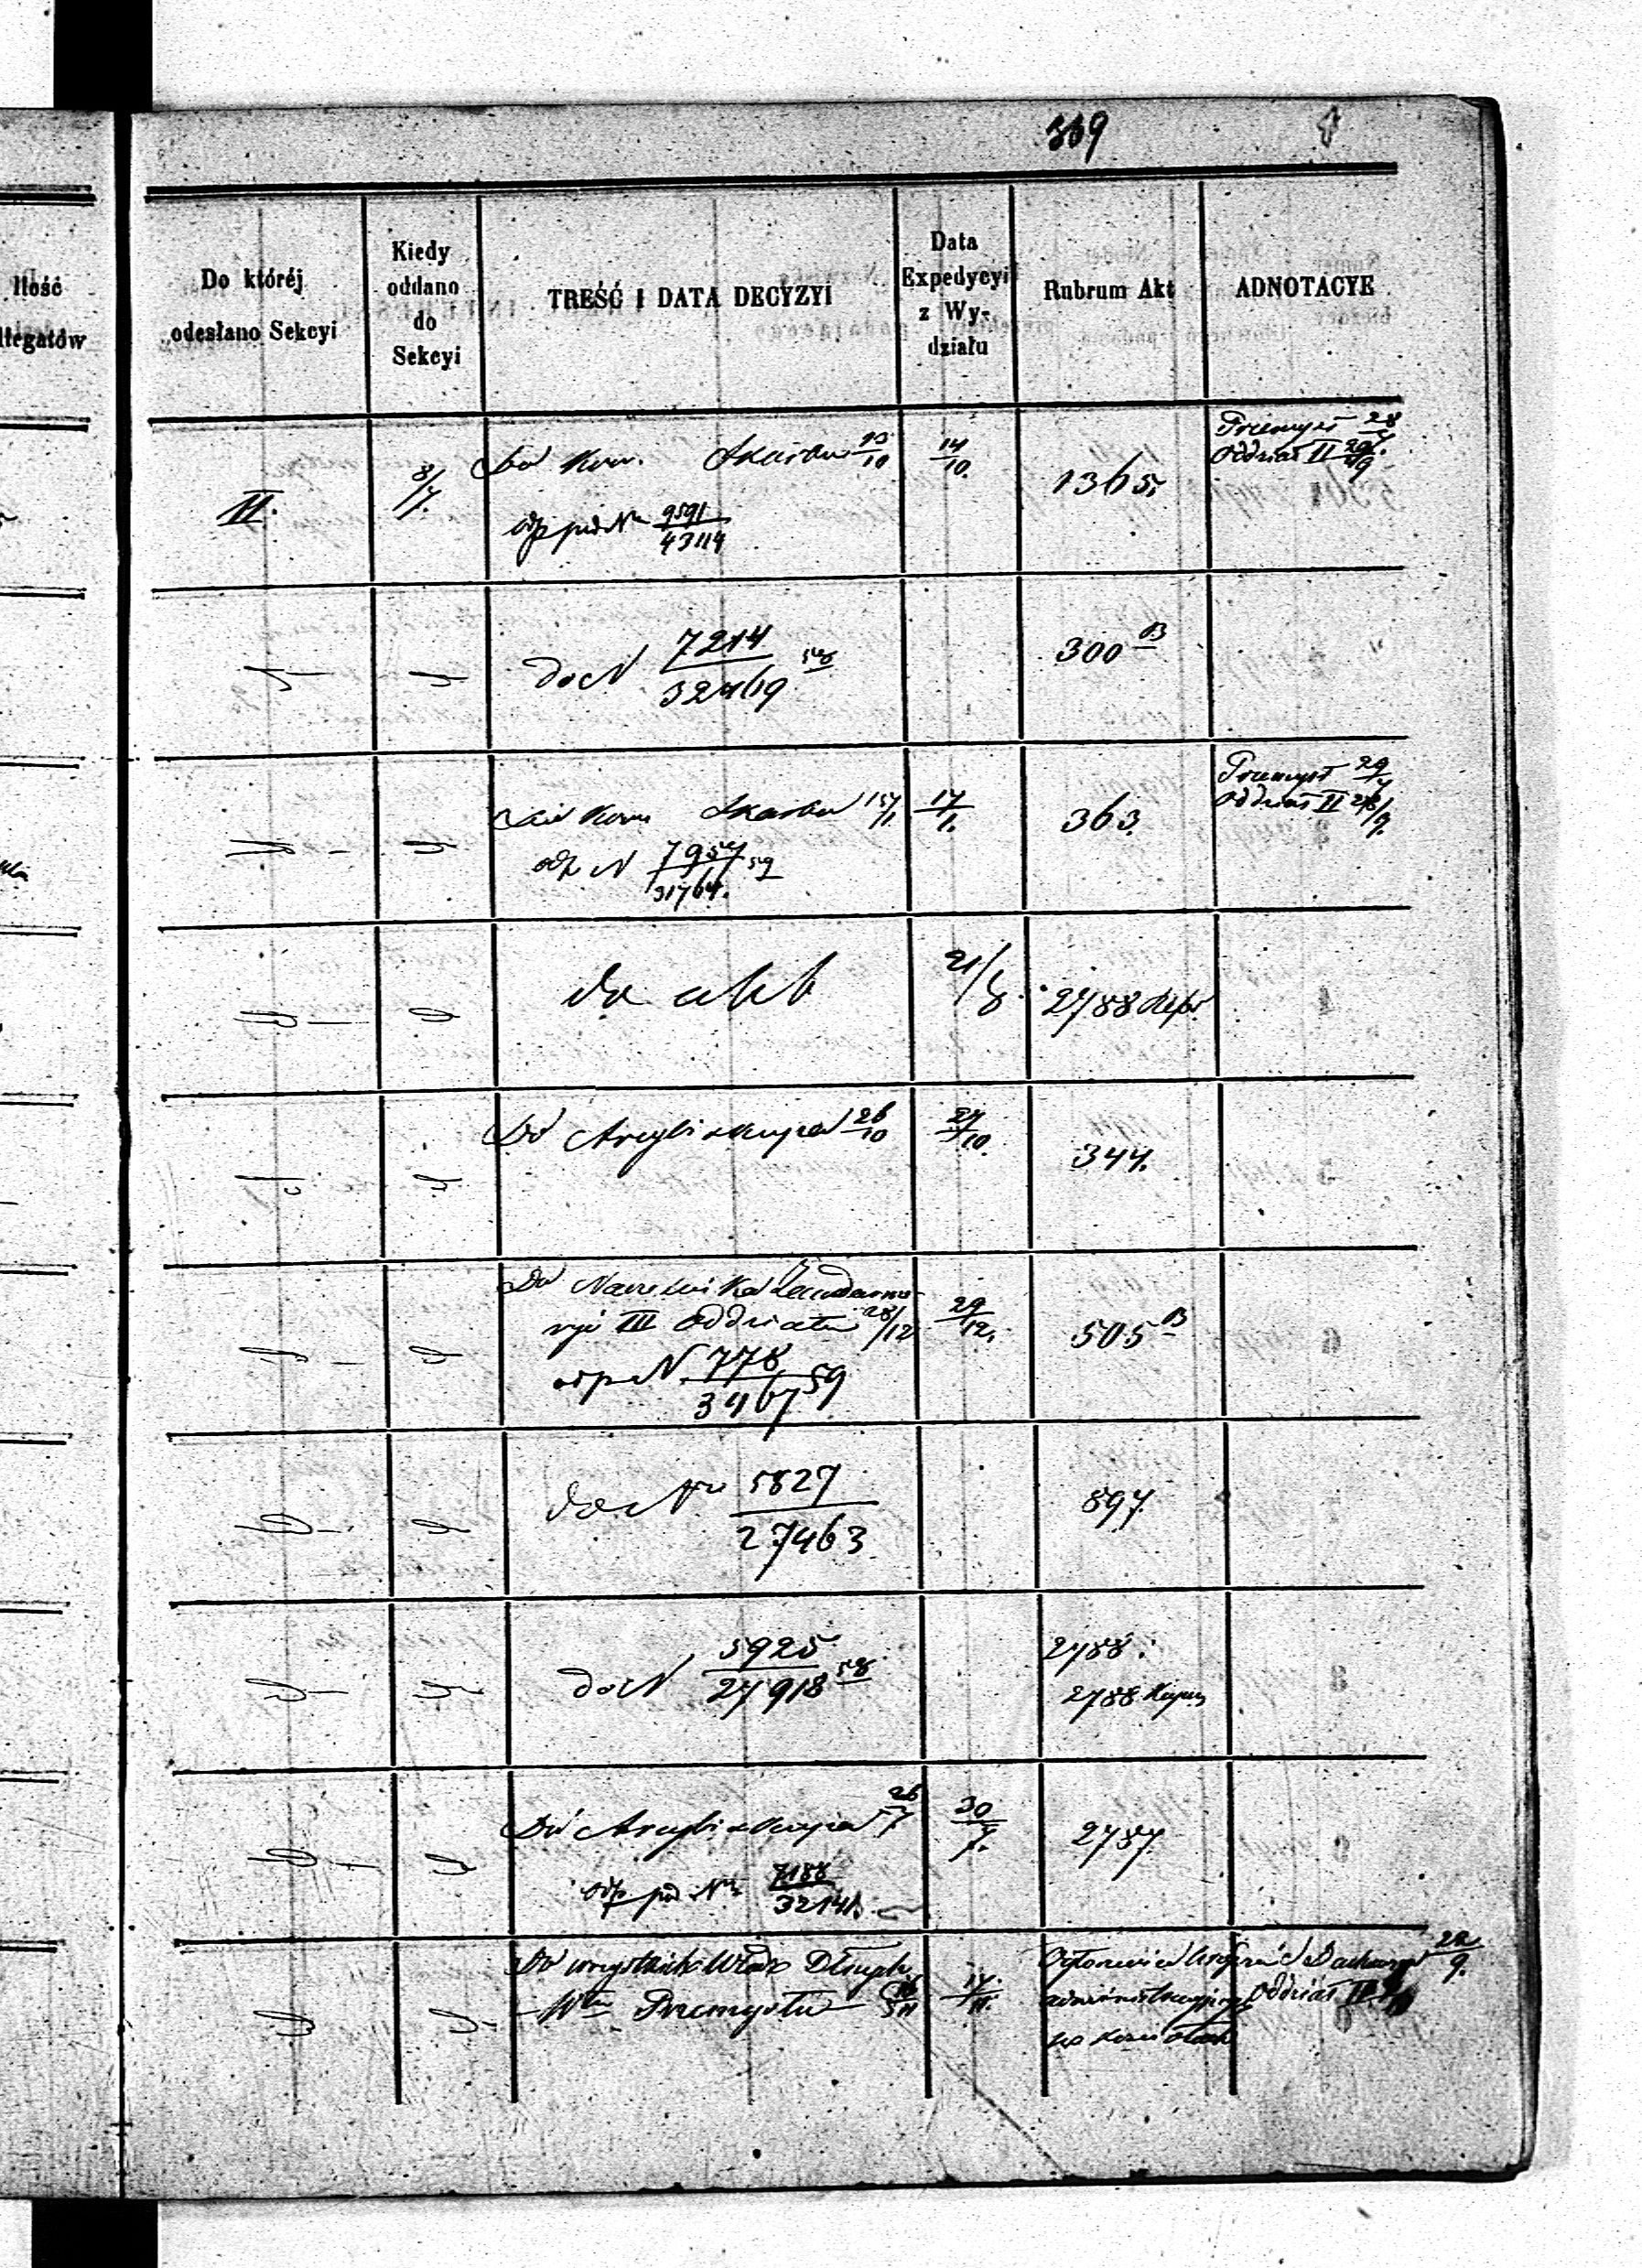 369
Ilość
llegatów
Do któréj
odesłano Sekcyi
Kiedy
oddano
do
Sekcyi
TREŚĆ I DATA DECYZYI
Data
Expedycyi
z Wy-
działu
Rubrum Akt
ADNOTACYE
II.
8/7.
Do Kom. Skarbu 13/10
odp pod Nr 9591/43114
14/10.
1365.
Przemysł 28/7.
Oddział II
do N 7214/32469 58
300 B
Do Kom Skarbu 15/1
odp N 7957/31764. 59
17/1.
363.
Przemysł 29/7
Oddział II 28/9.
do akt
21/8.
2788
Do Arcybiskupa 26/10
27/10.
344.
Do Naczelnika Żandarme-
ryi III Oddziału 28/12
odp N. 778/3467 59
29/12.
505 B
do Nr 5827/27463
897.
do N 5925/27918 58
2788.
2788
Do Arcybiskupa 26/7
odp pod Nr 7188/32141.
30/7.
2787.
Do wszystkich Władz
Przemysłu
17/11.
22/9.
Oddział